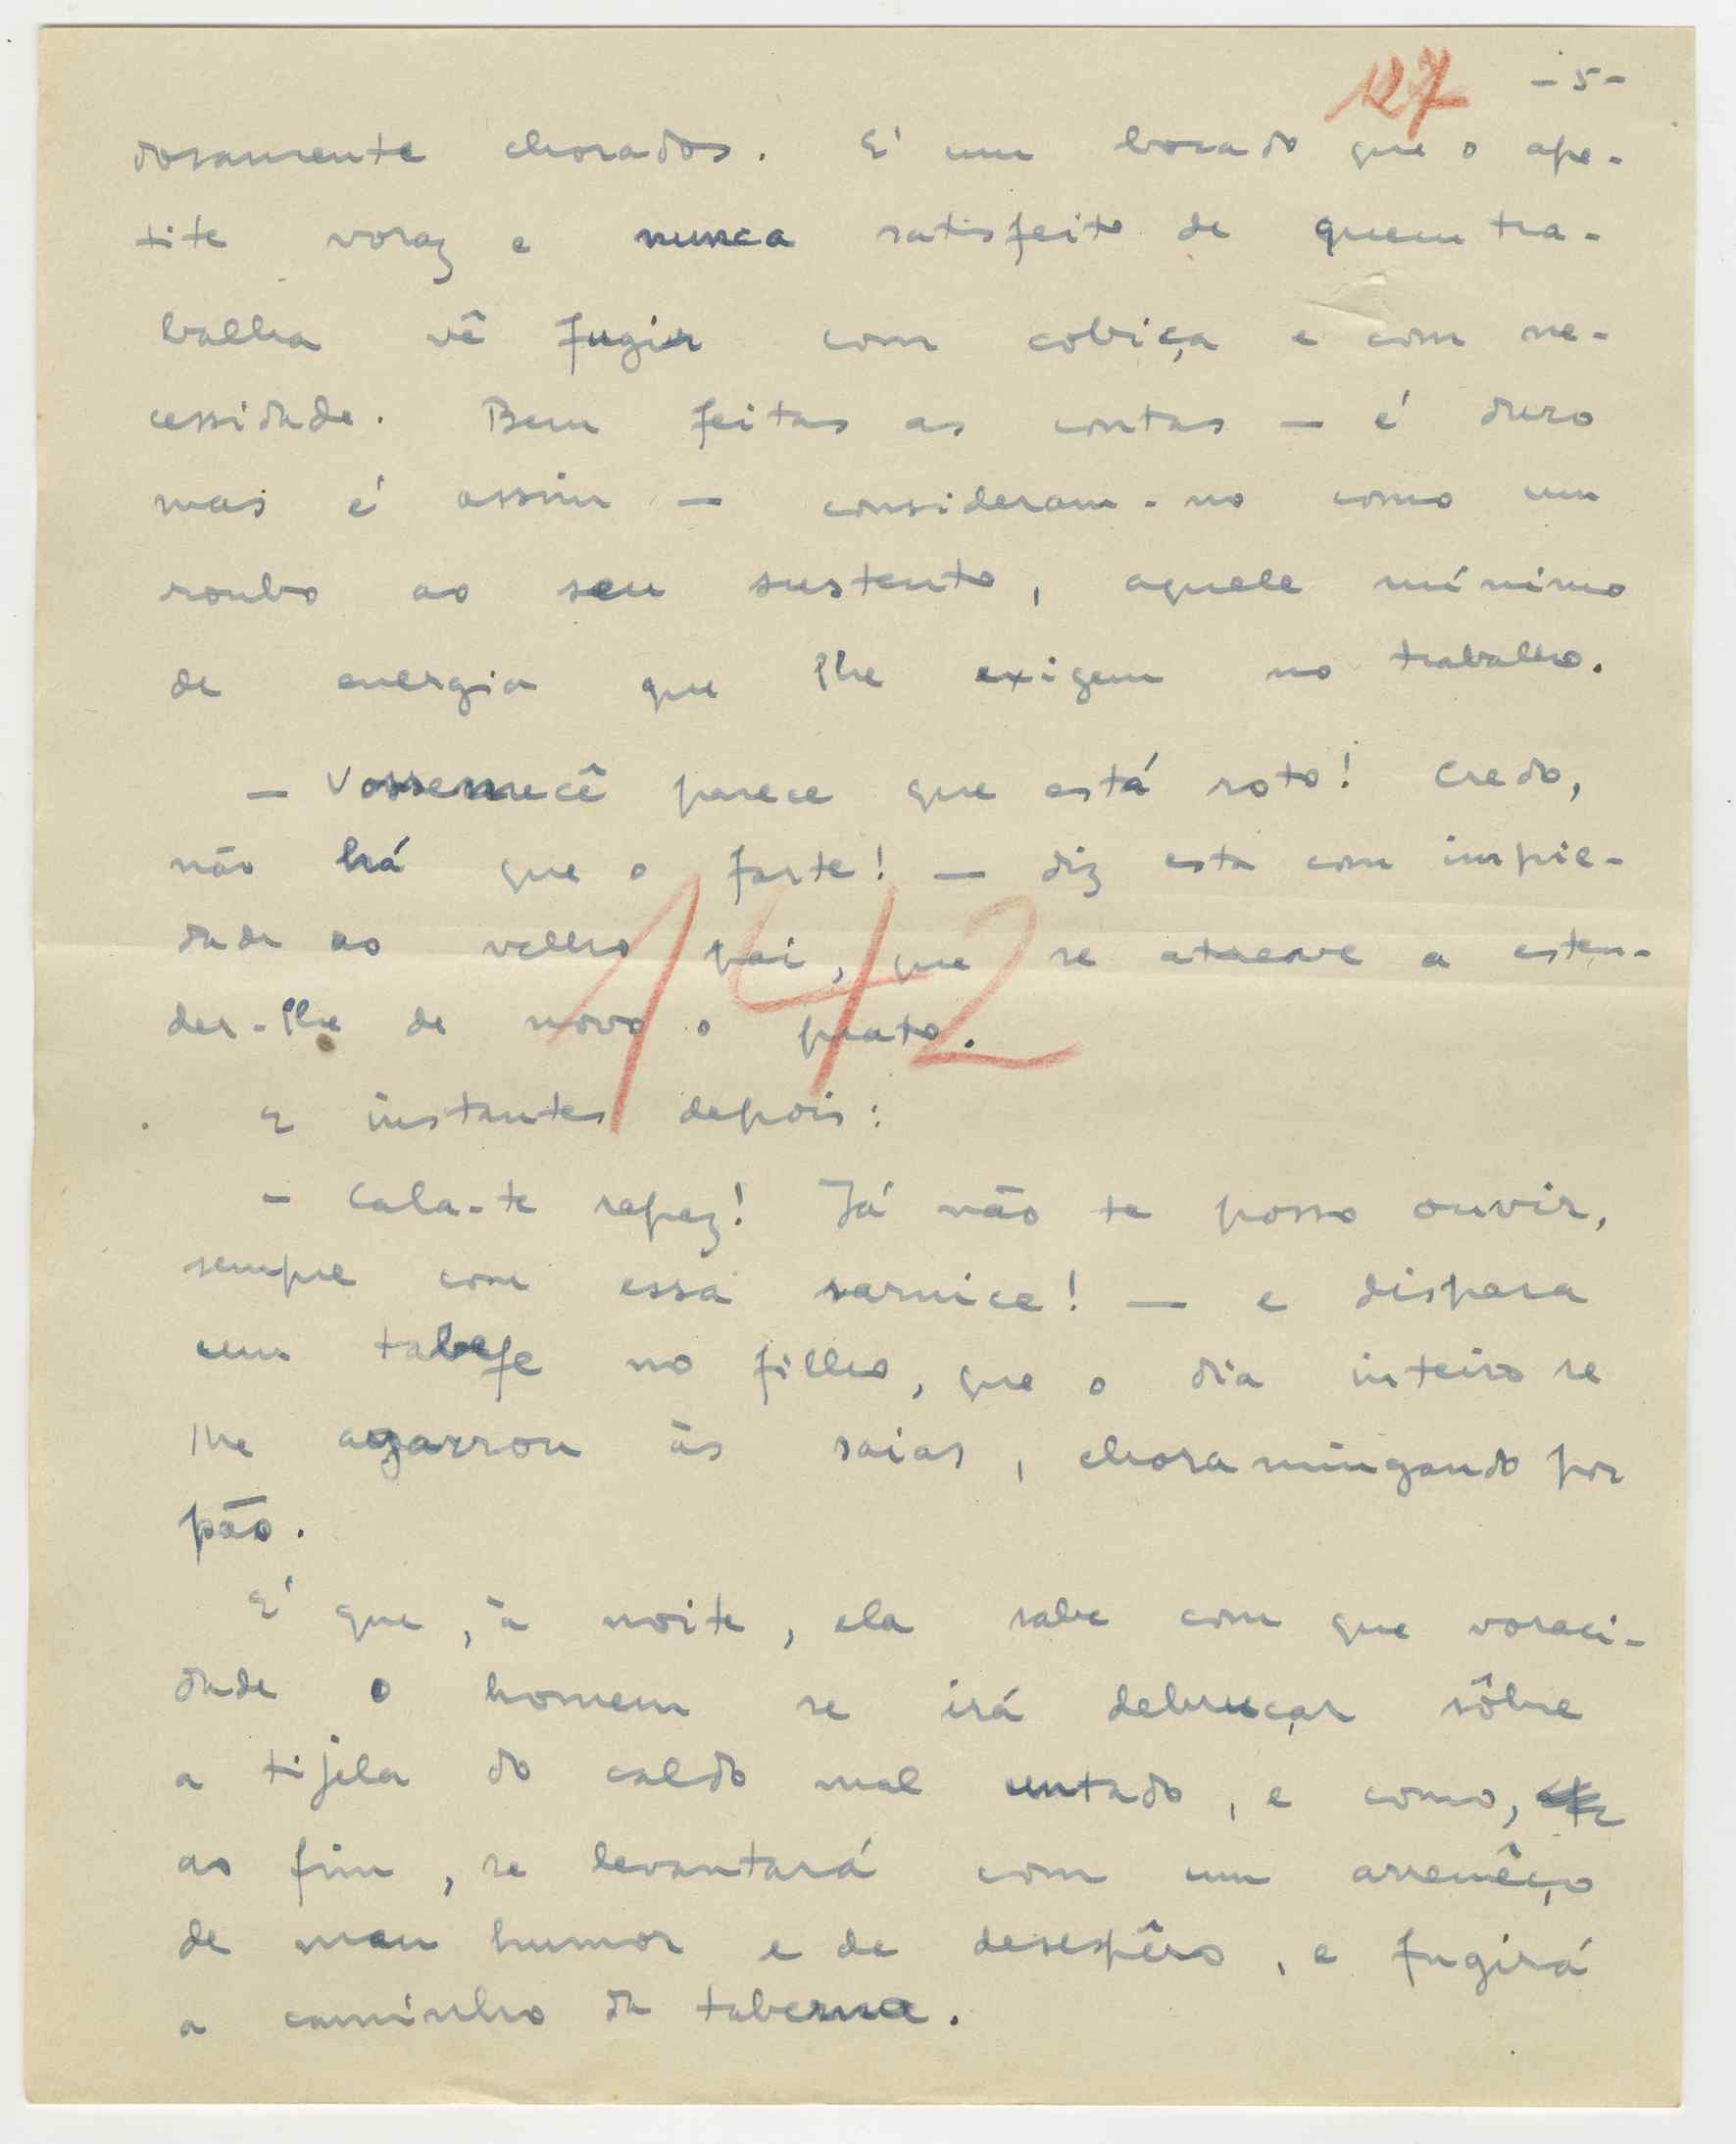 127 -5-
dosamente chorados. E' um bocado que o ape-
tite voraz e nunca satisfeito de quem tra-
balha vê fugir com cobiça e com ne-
cessidade. Bem feitas as contas — é duro
mas é assim — consideram-no como um
roubo ao seu sustento, aquele mínimo
de energia que lhe exigem no trabalho.
— Vossemecê parece que está roto! Credo,
não há que o farte! — diz esta com impie-
dade ao velho pai, que se atreve a esten-
der-lhe de novo o prato.
142
E instantes depois:
- Cala-te rapaz! Já não te posso ouvir,
sempre com essa sarnice! — e dispara
um tabefe no filho, que o dia inteiro se
lhe agarrou às saias, choramingando por
pão.
E' que, à noite, ela sabe com que voraci-
dade o homem se irá debruçar sôbre
a tijela do caldo mal untado, e como,
ao fim, se levantará com um arremêço
de mau humor e de desespêro, e fugirá
a caminho da taberna.